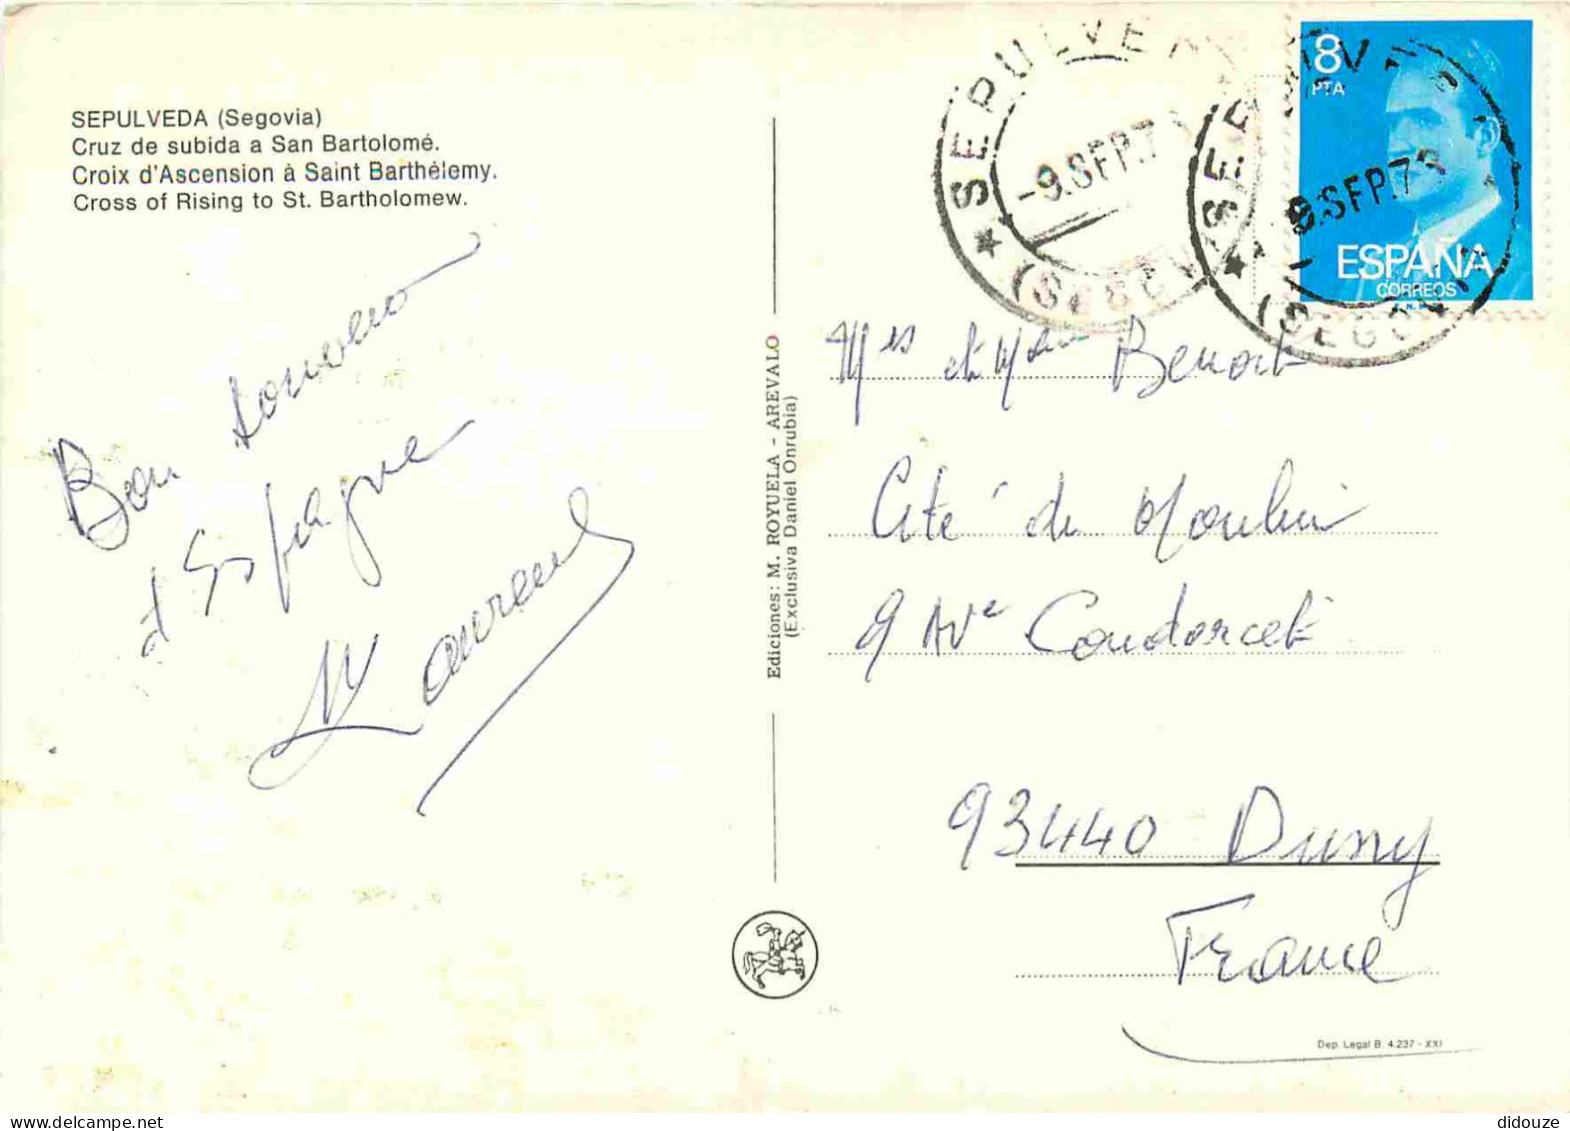 SEPULVEDA (Segovia)
Cruz de subida a San Bartolomé.
Croix d'Ascension à Saint Barthélemy.
Cross of Rising to St. Bartholomew.
Bon souvenir
d'Espagne
Laurent
Ediciones: M. ROYUELA - AREVALO
(Exclusiva Daniel Onrubia)
SEPULVEDA
-9.SEP.7
(SEGOVIA)
SEPULVEDA
9.SEP.7
(SEGOVIA)
8
PTA
ESPAÑA
CORREOS
Mrs et Mme Benoit
Cité du Moulin
9 Ave Condorcet
93440 Dugny
France
Dep. Legal B. 4.237 - XXI
didouze
delcampe.net